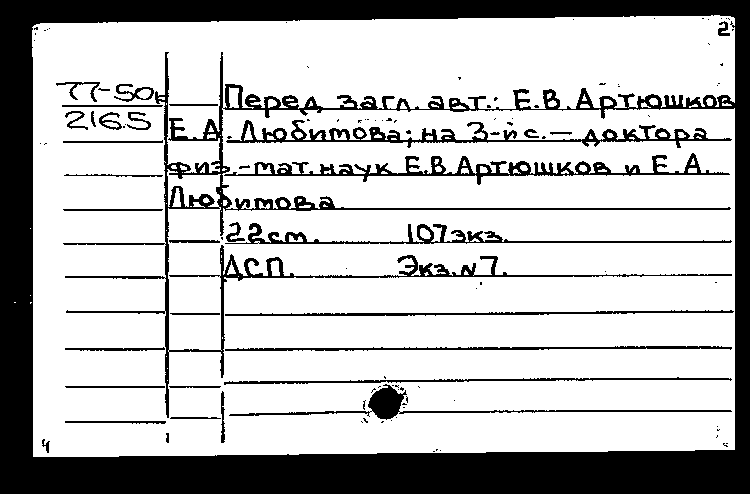 2
77-50к
2165
Перед загл. авт.: Е.В. Артюшков
Е.А. Любимова; на 3-й с. — доктора
физ.-мат. наук Е.В. Артюшков и Е.А.
Любимова.
22 см. 107 экз.
ДСП. Экз. N 7.
4